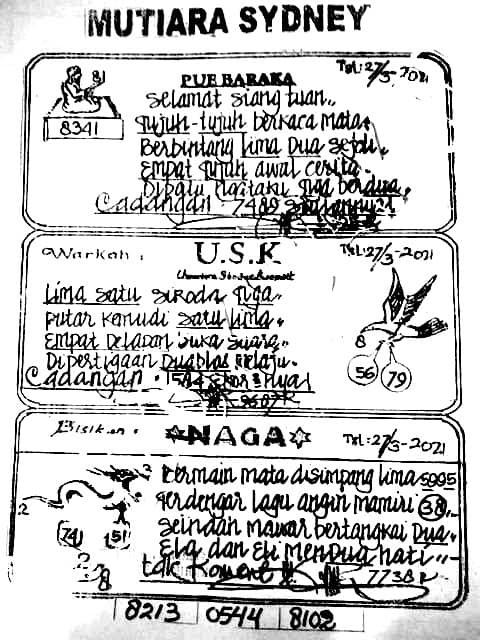 MUTIARA SYDNEY
PUE BARAKA
Tgl: 27/3-2021
8341
Selamat siang tuan..
Tujuh-tujuh berkaca mata.
Berbintang lima dua sejoli.
Empat tujuh awal cerita.
Dibatu Tiga berdua.
Cadangan 7489
Warkah:
U.S.K
Tgl: 27/3-2021
Lima satu si Roda Tiga..
putar kemudi satu lima.
Empat Delapan suka suara.
Dipertigaan Duablas melaju.
Cadangan 1544
8
56
79
Bisikan:
NAGA
Tgl: 27/3-2021
Bermain mata disimpang lima 5995
Terdengar lagu angin mamiri 38
Seindah mawar bertangkai Dua
Ela dan Eli menDua hati
tdk Koment !!
7738
2
3
74
51
8213 0544 8102